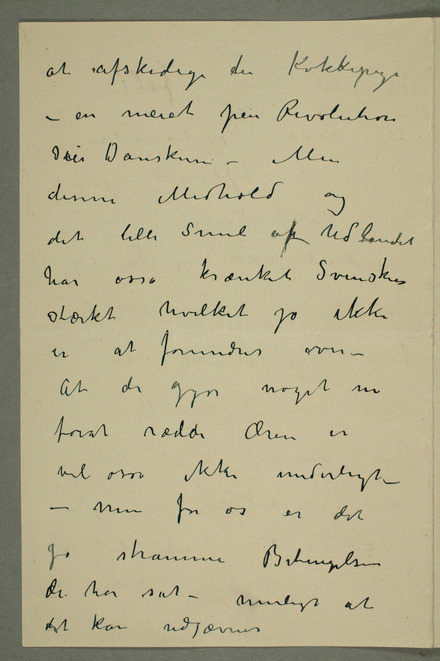 at afskedige en Kokkepige
– en meget pen Revolution
sier Danskerne – Men
denne Medhold og
det lille Smil af Udlandet
har ossa krænket Svenskerne
stærkt hvilket jo ikke
er at forundres over –
At de gjør noget nu
forat rædde Æren er
vel ossa ikke underligt –
– men for os er det
jo stramme Betingelser
de har sat – muligt at
det kan udjævnes